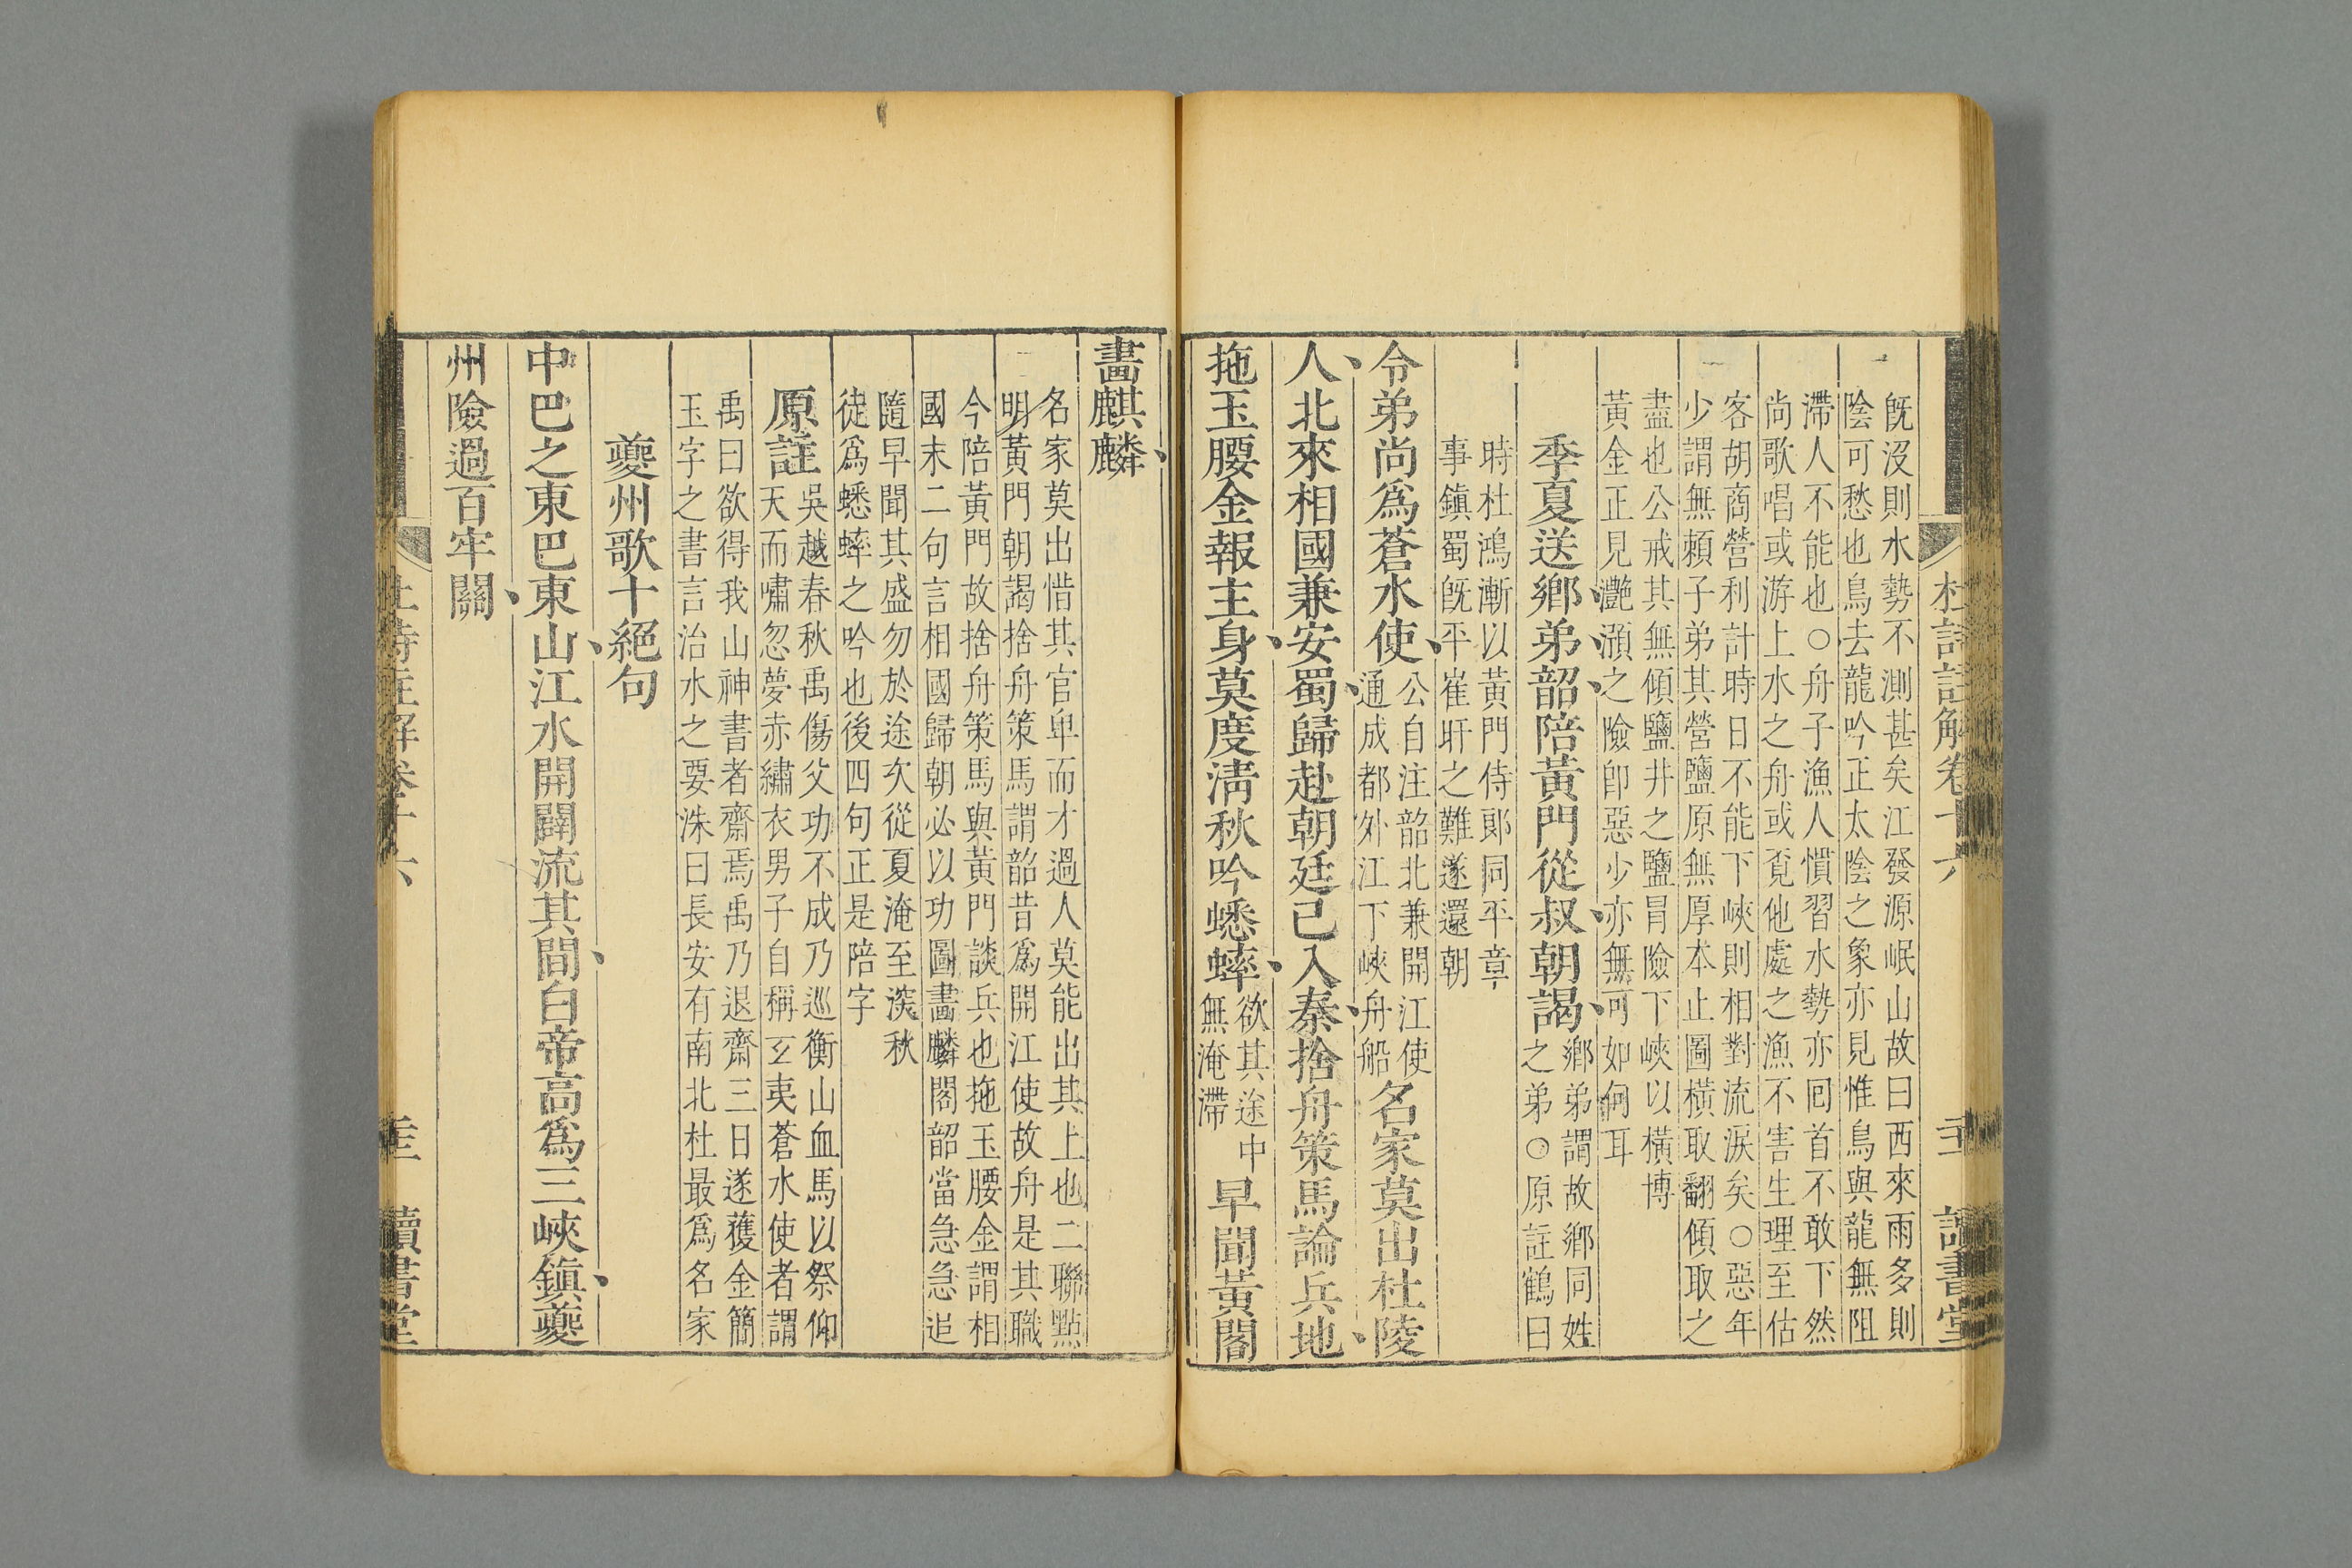 杜詩註解卷十六
讀書堂
既沒則水勢不測甚矣江發源岷山故曰西來雨多則
陰可愁也鳥去龍吟正太陰之象亦見惟鳥與龍無阻
滯人不能也○舟子漁人慣習水勢亦回首不敢下然
尚歌唱或游上水之舟或覔他處之漁不害生理至估
客胡商營利計時日不能下峽則相對流淚矣○惡年
少謂無賴子弟其營鹽原無厚本止圖橫取翻傾取之
盡也公戒其無傾鹽井之鹽冒險下峽以橫博
黃金正見灧澦之險卽惡少亦無可如何耳
季夏送鄉弟韶陪黃門從叔朝謁
鄉弟謂故鄉同姓
之弟○原註鶴曰
時杜鴻漸以黃門侍郎同平章
事鎮蜀既平崔旰之難遂還朝
令弟尚爲蒼水使
公自注韶北兼開江使
通成都外江下峽舟船
名家莫出杜陵
人北來相國兼安蜀歸赴朝廷已入秦捨舟策馬論兵地
拖玉腰金報主身莫度淸秋吟蟋蟀
欲其途中
無淹滯
早聞黃閣
畫麒麟
名家莫出惜其官卑而才過人莫能出其上也二聯點
明黃門朝謁捨舟策馬謂韶昔爲開江使故舟是其職
今陪黃門故捨舟策馬與黃門談兵也拖玉腰金謂相
國末二句言相國歸朝必以功圖畫麟閣韶當急急追
隨早聞其盛勿於途次從夏淹至深秋
徒爲蟋蟀之吟也後四句正是陪字
原註
吳越春秋禹傷父功不成乃巡衡山血馬以祭仰
天而嘯忽夢赤繡衣男子自稱玄夷蒼水使者謂
禹曰欲得我山神書者齋焉禹乃退齋三日遂獲金簡
玉字之書言治水之要洙曰長安有南北杜最爲名家
夔州歌十絕句
中巴之東巴東山江水開闢流其間白帝高爲三峽鎮夔
州險過百牢關
杜詩註解卷十六
讀書堂